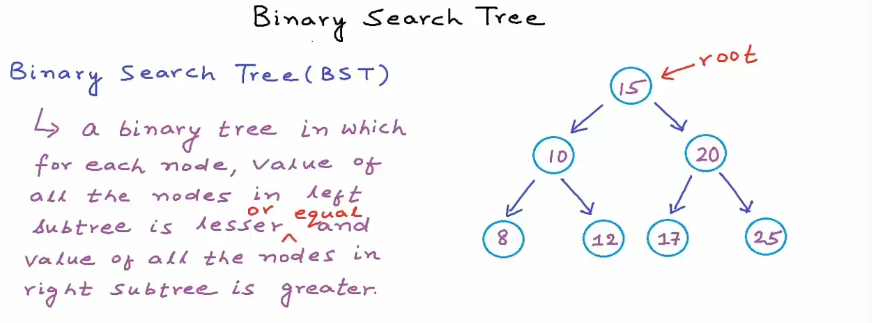 Binary Search Tree
Binary Search Tree (BST)
↳ a binary tree in which
for each node, value of
all the nodes in left
subtree is lesser or equal and
value of all the nodes in
right subtree is greater.
root
15
10
20
8
12
17
25